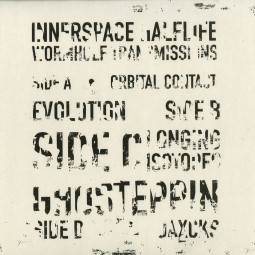 INNERSPACE HALFLIFE
WORMHOLE TRANSMISSIONS
SIDE A ORBITAL CONTACT
EVOLUTION SIDE B
SIDE C LONGING
ISOTOPES
GHOSTEPPIN
SIDE D JAXCKS